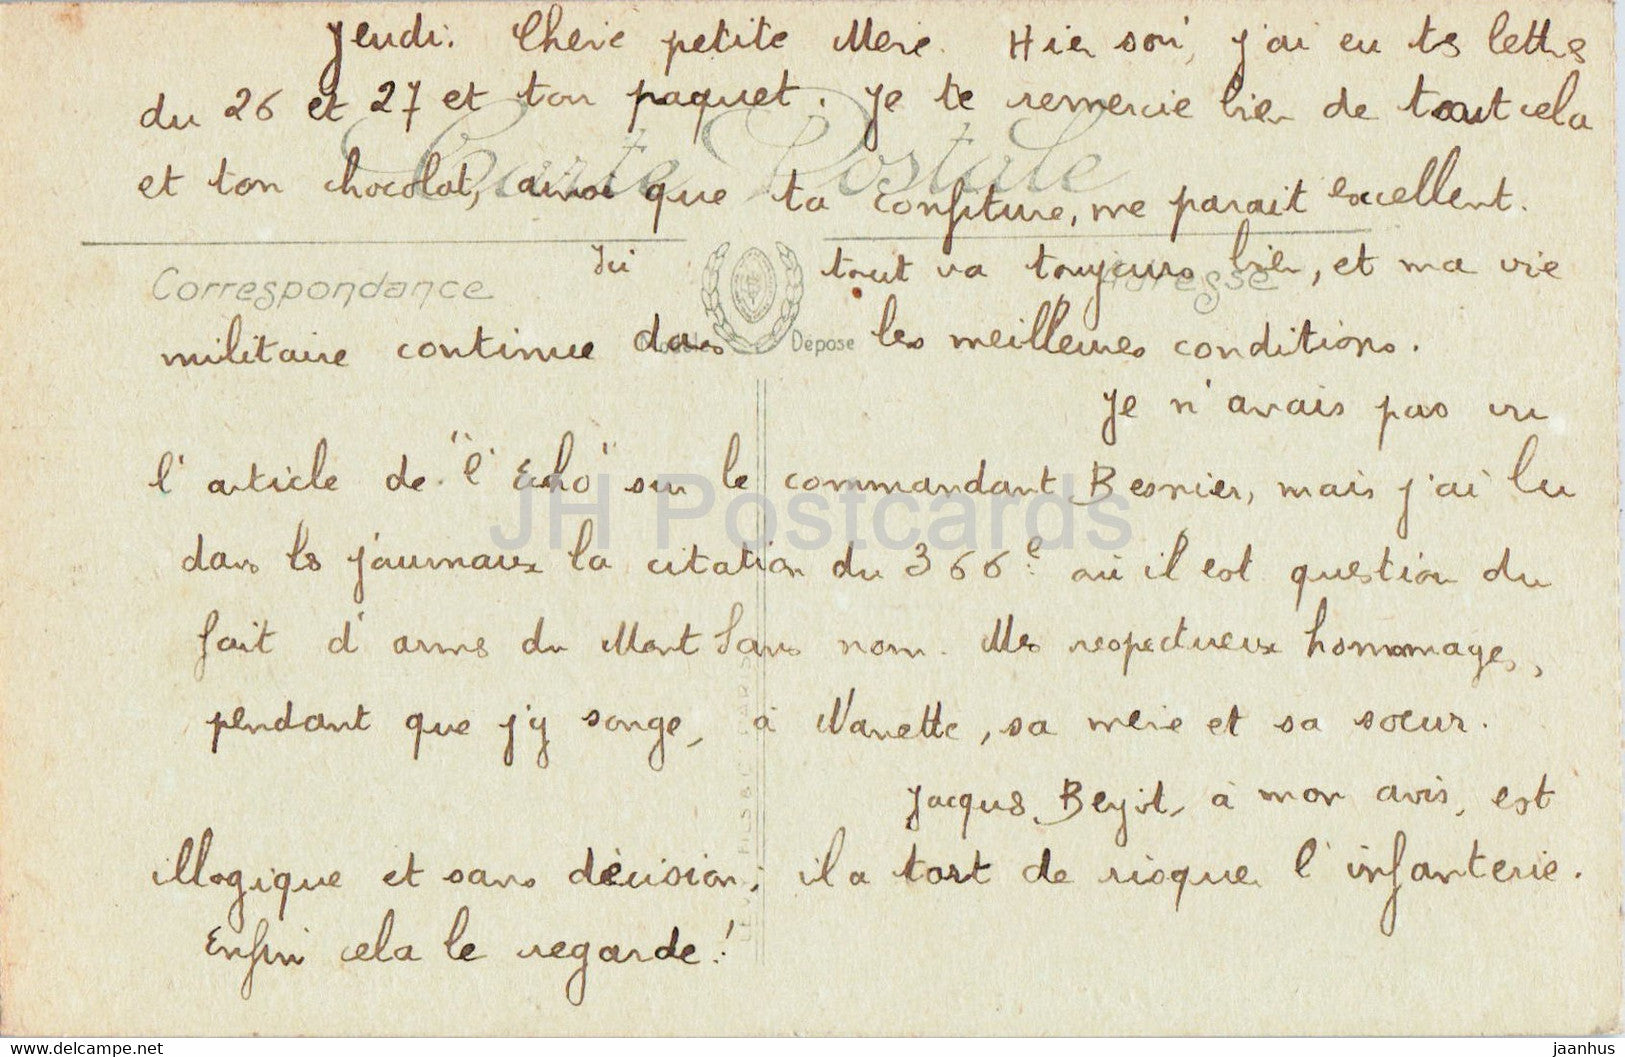 Jeudi. Chère petite Mère. Hier soir, j'ai eu tes lettres
du 26 et 27 et ton paquet. Je te remercie bien de tout cela
Carte Postale
et ton chocolat, ainsi que ta confiture, me parait excellent.
Ici tout va toujours bien, et ma vie
Correspondance Adresse
militaire continue dans les meilleures conditions.
Modèle Déposé
Je n'avais pas vu
l'article de "l'Echo" sur le commandant Besnier, mais j'ai lu
JH Postcards
dans les journaux la citation du 366e. où il est question du
fait d'armes du Mont Sans nom. Mes respectueux hommages,
pendant que j'y songe, à Nanette, sa mère et sa soeur.
Jacques à mon avis, est
illogique et sans décision; il a tort de risquer l'infanterie.
Enfin cela le regarde!
www.delcampe.net jaanhus